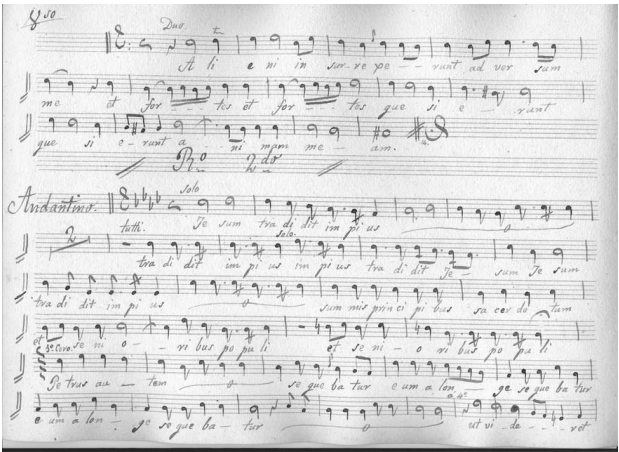 ℣so
Duo
A li e ni in sur-re pe - - runt ad ver sum
me et for - - - tes et for - - - tes que si e - - runt
que si e - runt a - - ni mam me - - am.
Ro 2do
Andantino. solo
tutti. Je sum tra di dit im pi us
2 solo.
tra di dit im pi us im pi us tra di dit Je - sum Je sum
tra di dit im pi us sum mis prin ci pi bus sa cer do tum
et se ni o - - ri bus po pu li et se ni - o ri bus po pu li
Coro.
Pe trus au - tem se que ba tur e um a lon - - ge se que ba tur
e um a lon - ge se que ba - tur ut vi - de - - - ret